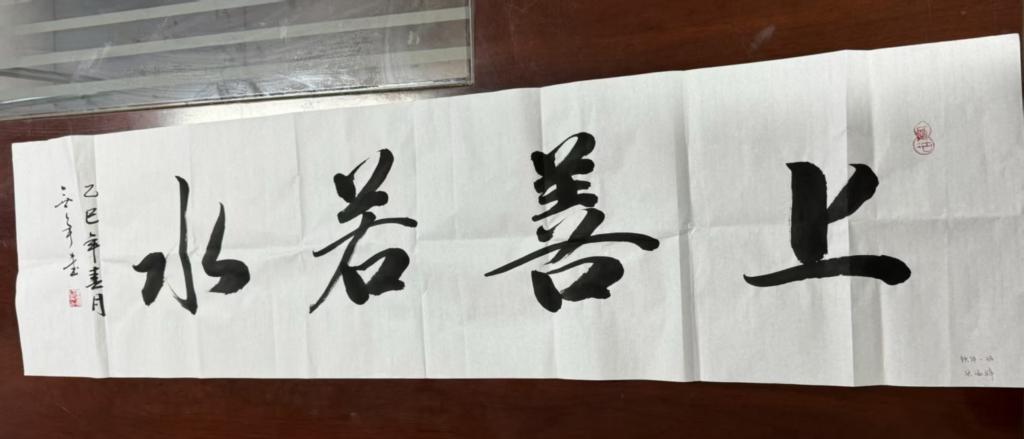 上善若水
乙巳年春月